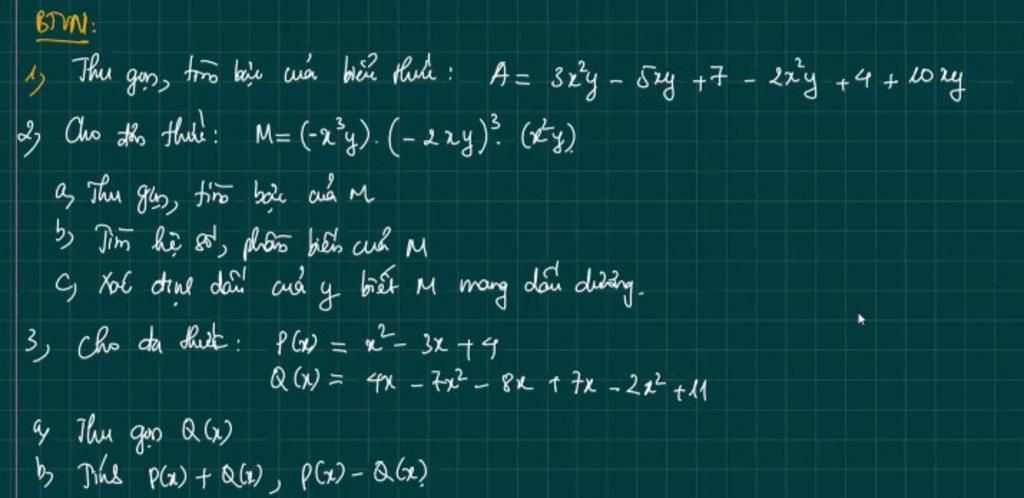 BTVN:
1, Thu gọn, tìm bậc của biểu thức: A = 3x²y - 5xy + 7 - 2x²y + 4 + 10xy
2, Cho đơn thức: M = (-x³y).(-2xy)³.(x²y)
a, Thu gọn, tìm bậc của M
b, Tìm hệ số, phần biến của M
c, Xác định dấu của y biết M mang dấu dương.
3, Cho đa thức: P(x) = x² - 3x + 4
Q(x) = 4x - 7x² - 8x + 7x - 2x² + 11
a, Thu gọn Q(x)
b, Tính P(x) + Q(x), P(x) - Q(x)